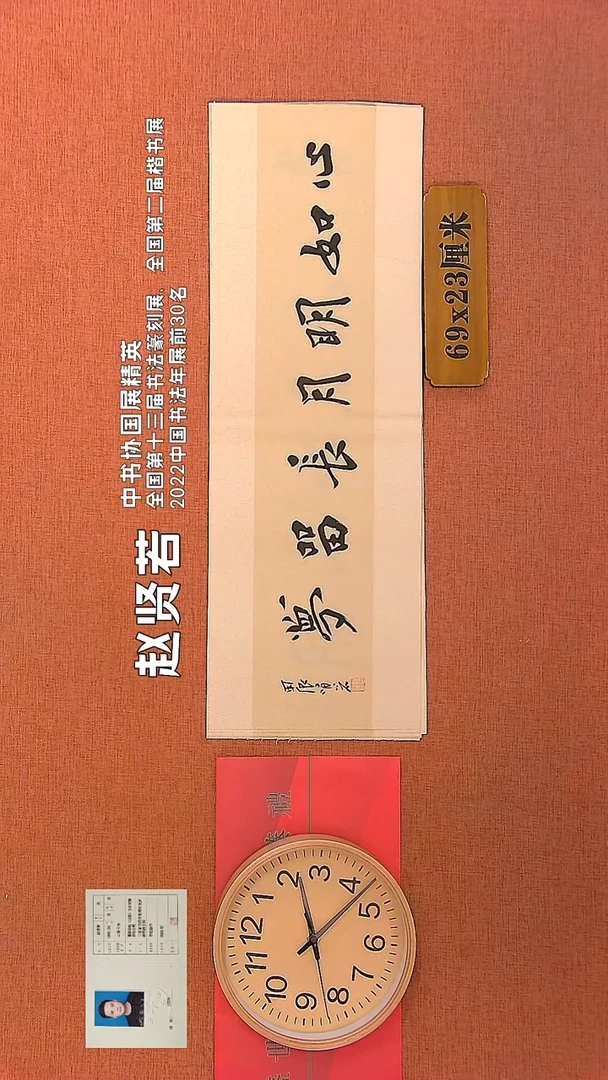 赵贤若
中书协国展精英
全国第十三届书法篆刻展、全国第二届楷书展
2022中国书法年展前30名
心如明月長留夢
69x23厘米
12
1
2
3
4
5
6
7
8
9
10
11